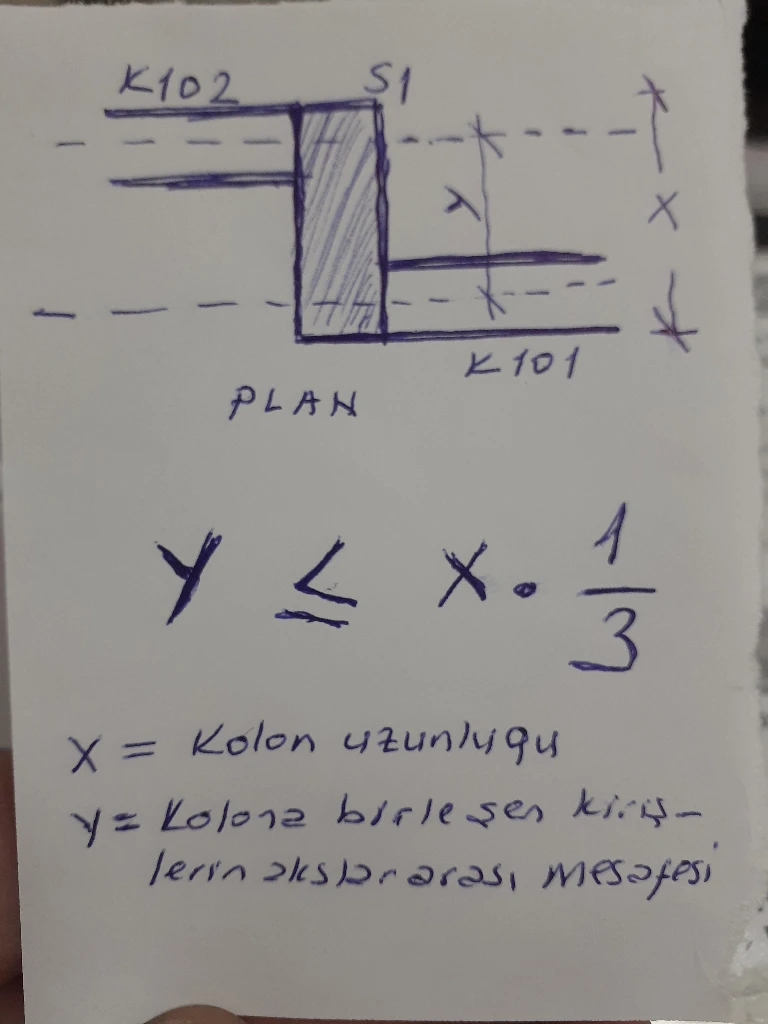 K102 S1
Y
X
K101
PLAN
Y ≤ X . 1/3
X = Kolon uzunlugu
Y = Kolona birleşen kiriş-
lerin akslararası mesafesi